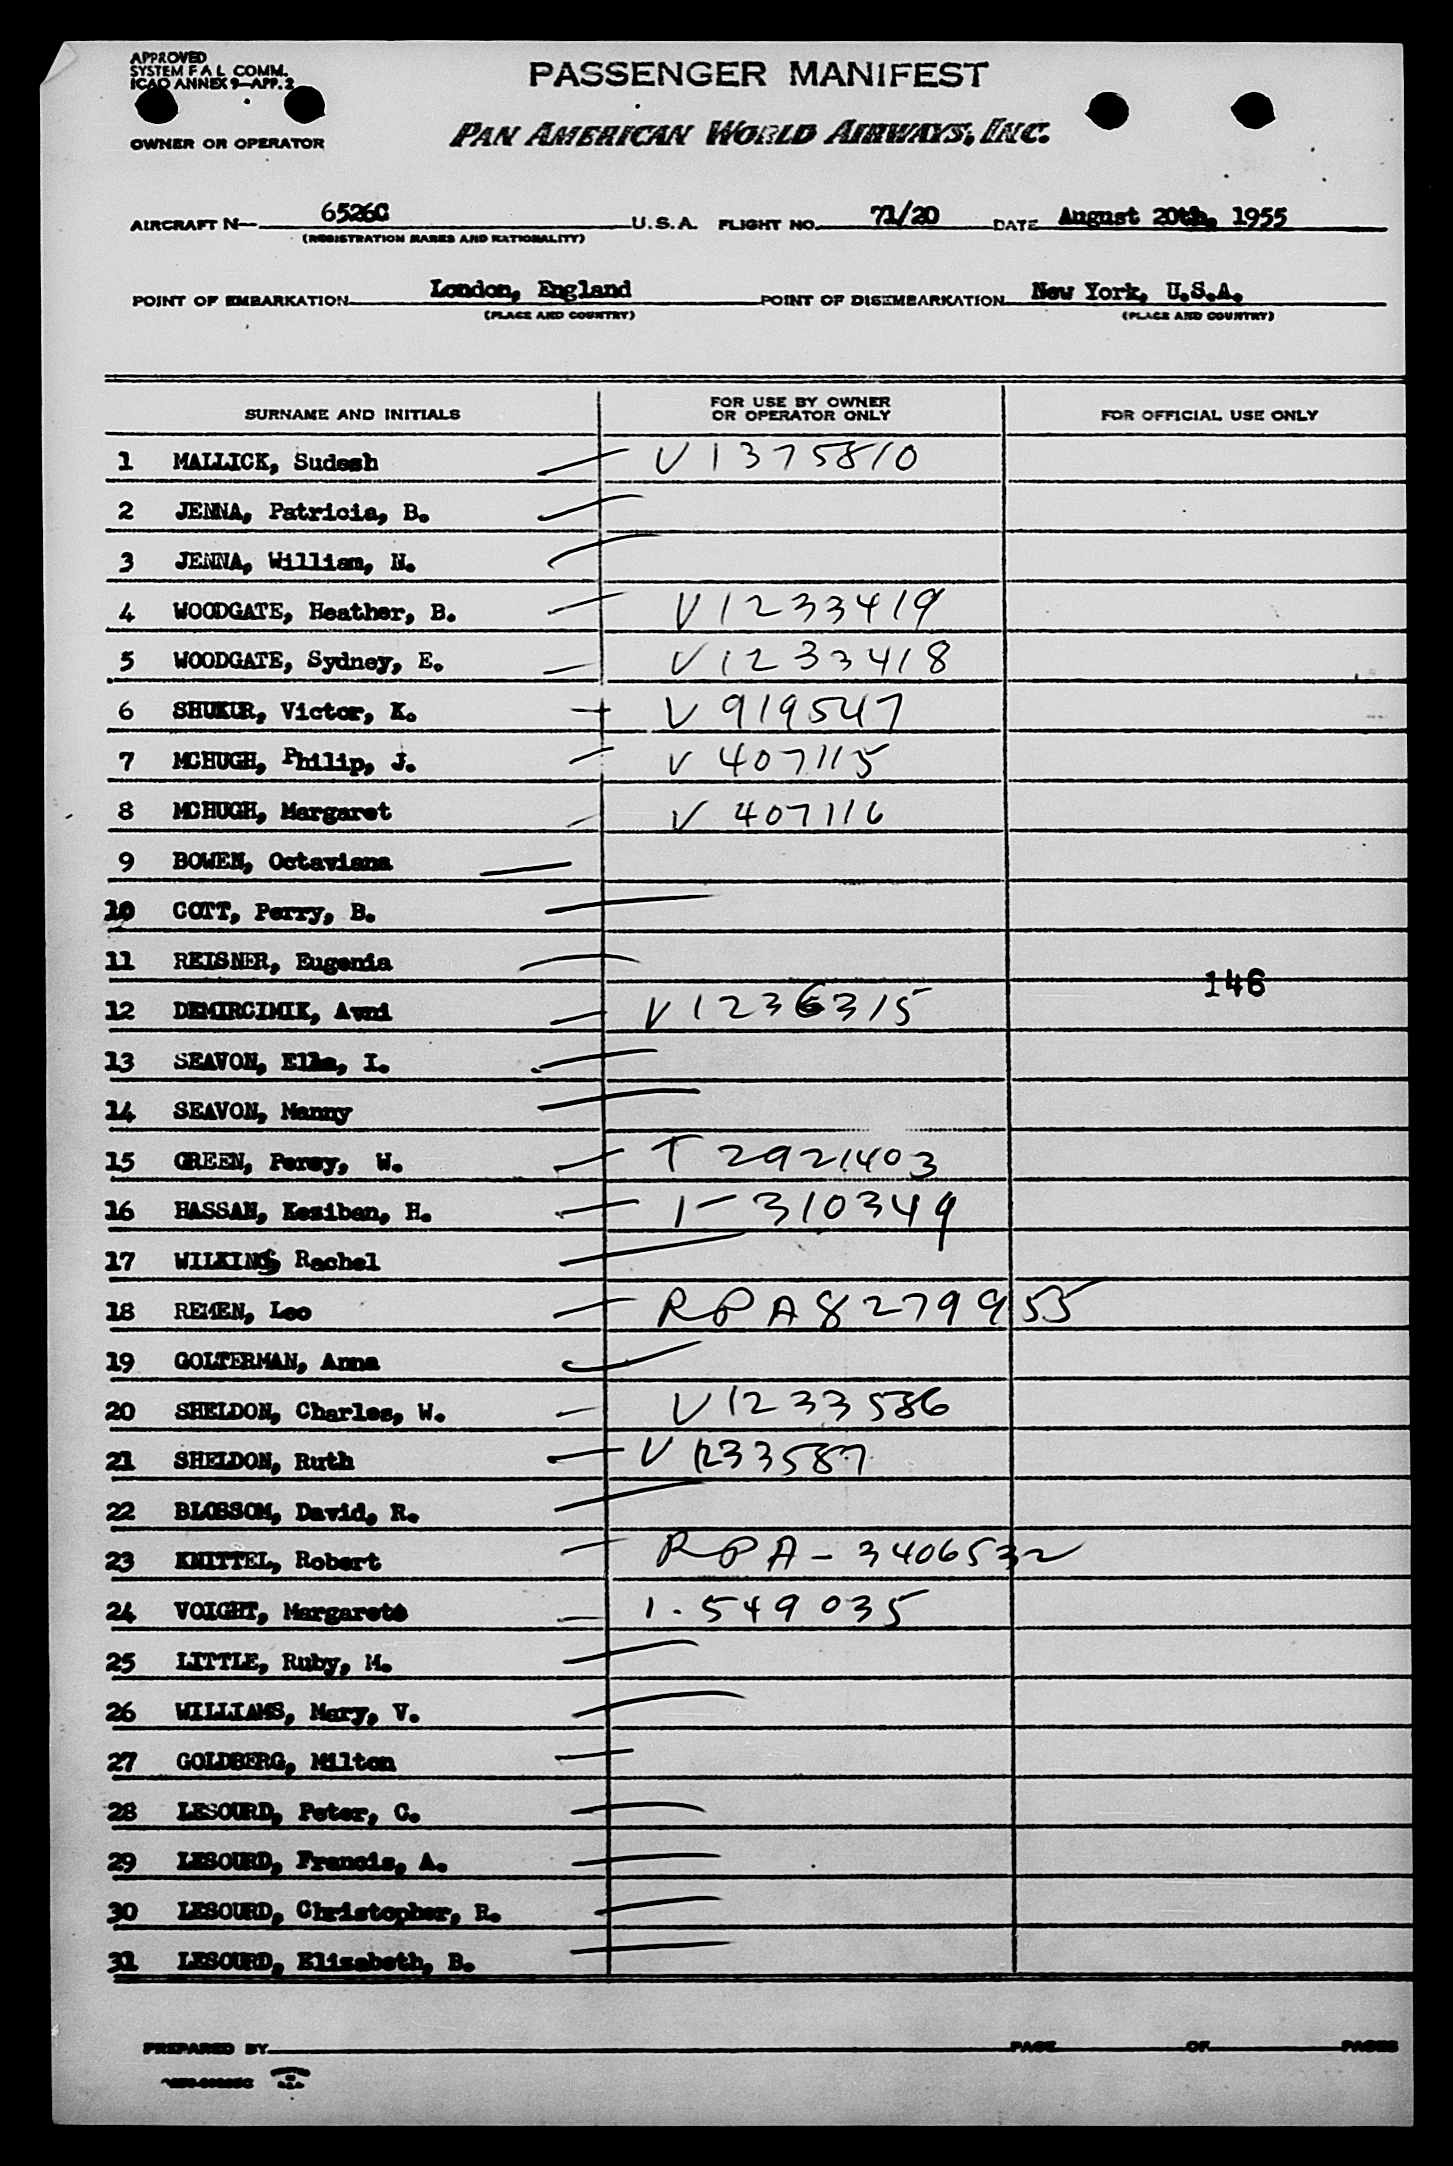 APPROVED
SYSTEM F A L COMM.
ICAO ANNEX 9—APP. 2
PASSENGER MANIFEST
OWNER OR OPERATOR
PAN AMERICAN WORLD AIRWAYS, INC.
AIRCRAFT N— 6526C U.S.A. FLIGHT NO. 71/20 DATE August 20th, 1955
(REGISTRATION MARKS AND NATIONALITY)
POINT OF EMBARKATION London, England POINT OF DISEMBARKATION New York, U.S.A.
(PLACE AND COUNTRY) (PLACE AND COUNTRY)
SURNAME AND INITIALS FOR USE BY OWNER OR OPERATOR ONLY FOR OFFICIAL USE ONLY
1 MALLICK, Sudesh V1375810
2 JENNA, Patricia, B.
3 JENNA, William, N.
4 WOODGATE, Heather, B. V1233419
5 WOODGATE, Sydney, E. V1233418
6 SHUKUR, Victor, K. V919547
7 MCHUGH, Philip, J. V 407115
8 MCHUGH, Margaret V 407116
9 BOWEN, Octaviana
10 COTT, Perry, B.
11 REISNER, Eugenia
146
12 DEMIRCIMIK, Avni V1236315
13 SEAVON, Ella, I.
14 SEAVON, Manny
15 GREEN, Percy, W. T 2921403
16 HASSAN, Keziban, H. 1-310349
17 WILKINS, Rachel
18 REMEN, Leo RPA8279955
19 GOLTERMAN, Anna
20 SHELDON, Charles, W. V1233586
21 SHELDON, Ruth V 1233587
22 BLOSSOM, David, R.
23 KNITTEL, Robert RPA-3406532
24 VOIGHT, Margarete 1.549035
25 LITTLE, Ruby, M.
26 WILLIAMS, Mary, V.
27 GOLDBERG, Milton
28 LESOURD, Peter, C.
29 LESOURD, Francis, A.
30 LESOURD, Christopher, R.
31 LESOURD, Elizabeth, B.
PREPARED BY PAGE OF PAGES